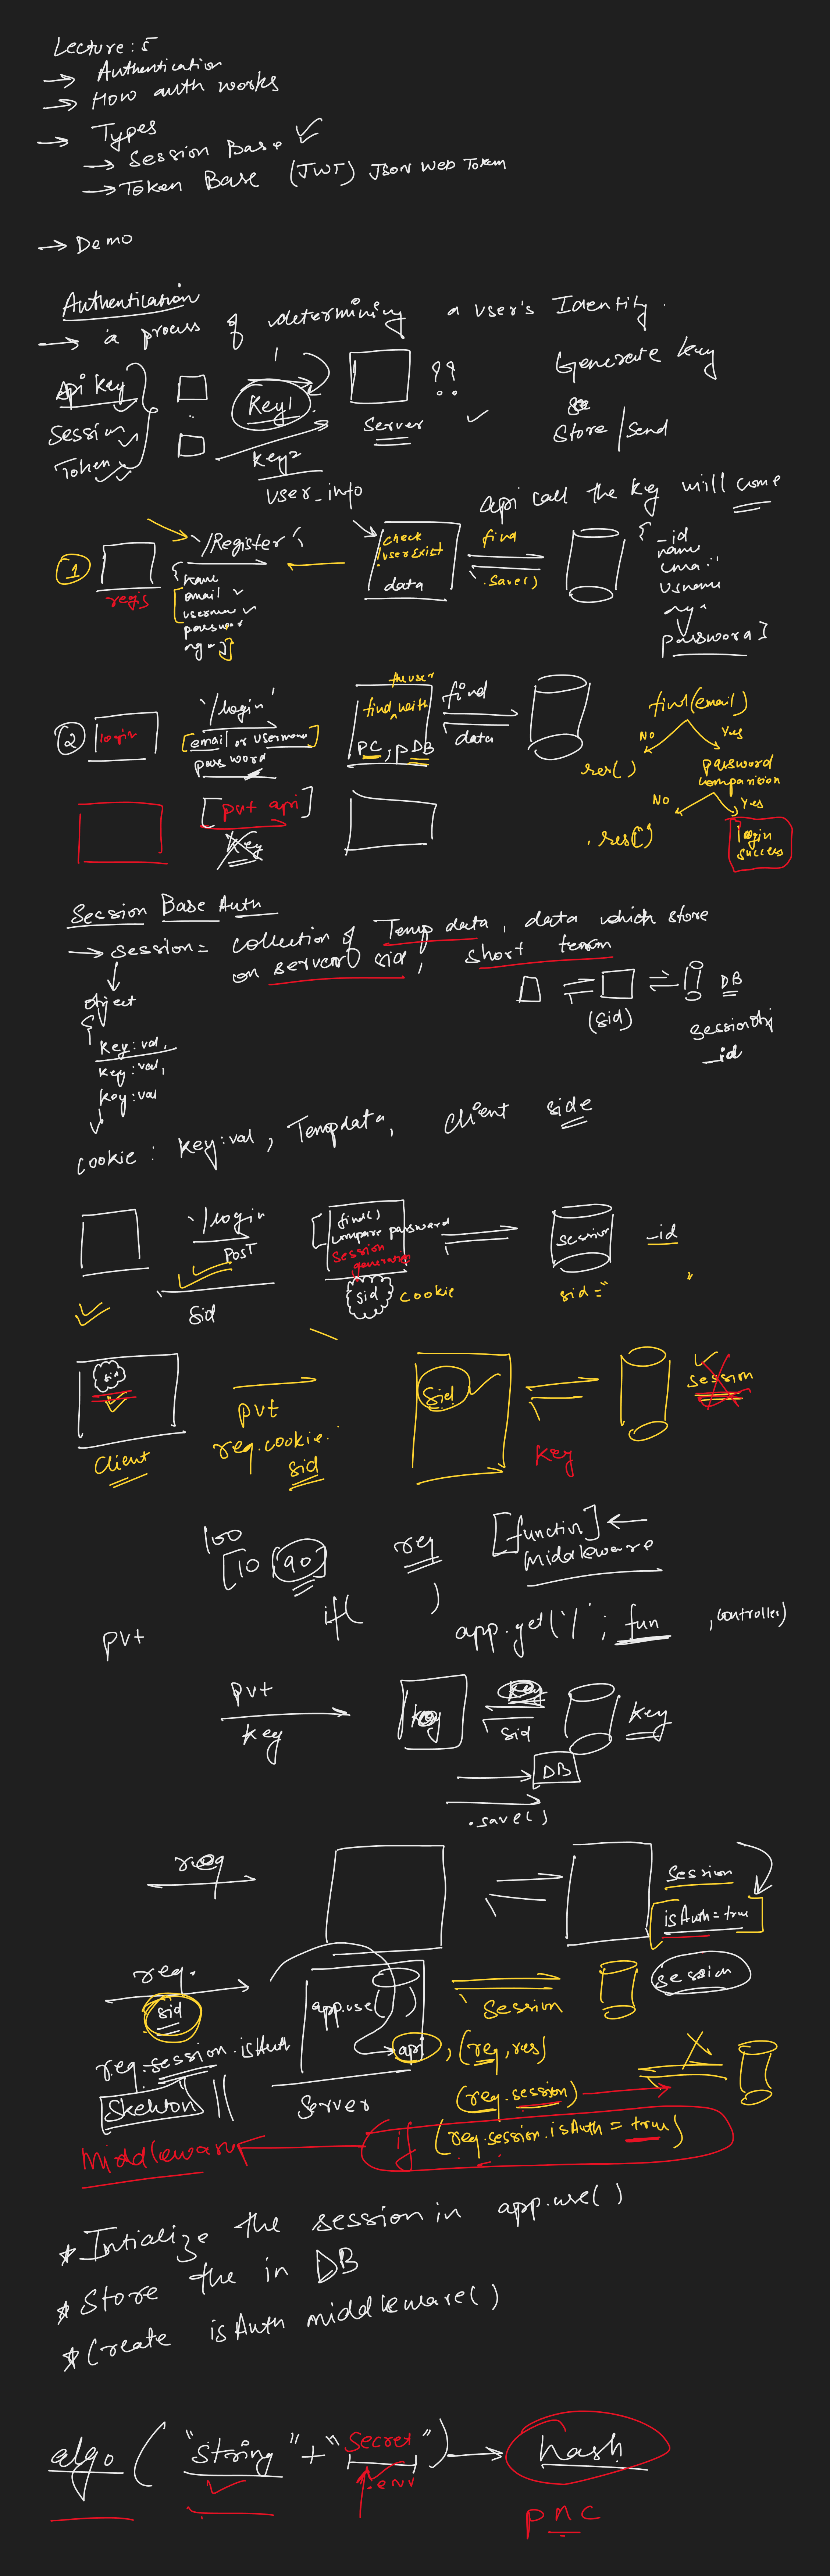 Lecture : 5
→ Authentication
→ How auth works
→ Types
→ Session Base ✓
→ Token Base (JWT) Json Web Token
→ Demo
Authentication
→ is a process of determining a user's Identity.
Api key
Session
Token
Key1
Key2
user_info
Server
??
Generate key
Store / send
api call the key will come
1
regis
'/Register'
{ name
email
username
password
age }
check
userExist
data
find
.save()
{ _id
name
email
usname
age
password }
2
login
'/login'
[email or username]
password
the user
find with
PC, pDB
find
data
find(email)
No
Yes
res()
password
comparison
No
Yes
.res("")
login
success
[pvt api]
key
Session Base Auth
→ session = collection of Temp data, data which store
on server sid, short term
object
{
key:val,
key:val,
key:val
}
(sid)
DB
sessionobj
_id
cookie : key:val, Tempdata, client side
'/login
POST
sid
find()
compare password
session
generation
sid
cookie
session
_id
sid = "
sid
Client
pvt
req.cookie.
sid
sid
key
session
100
[10 [90]
req
[function] ←
middleware
if( )
pvt
app.get('/', fun, controller)
pvt
key
key
key
sid
key
DB
.save()
req
session
isAuth = true
req.
sid
req.session.isAuth
Skeleton
app.use( )
api, (req, res)
Server
session
session
(req.session)
if (req.session.isAuth = true)
Middleware
* Intialize the session in app.use()
* Store the in DB
* Create isAuth middleware()
algo ( "string" + "secret" ) → hash
.env
pnc